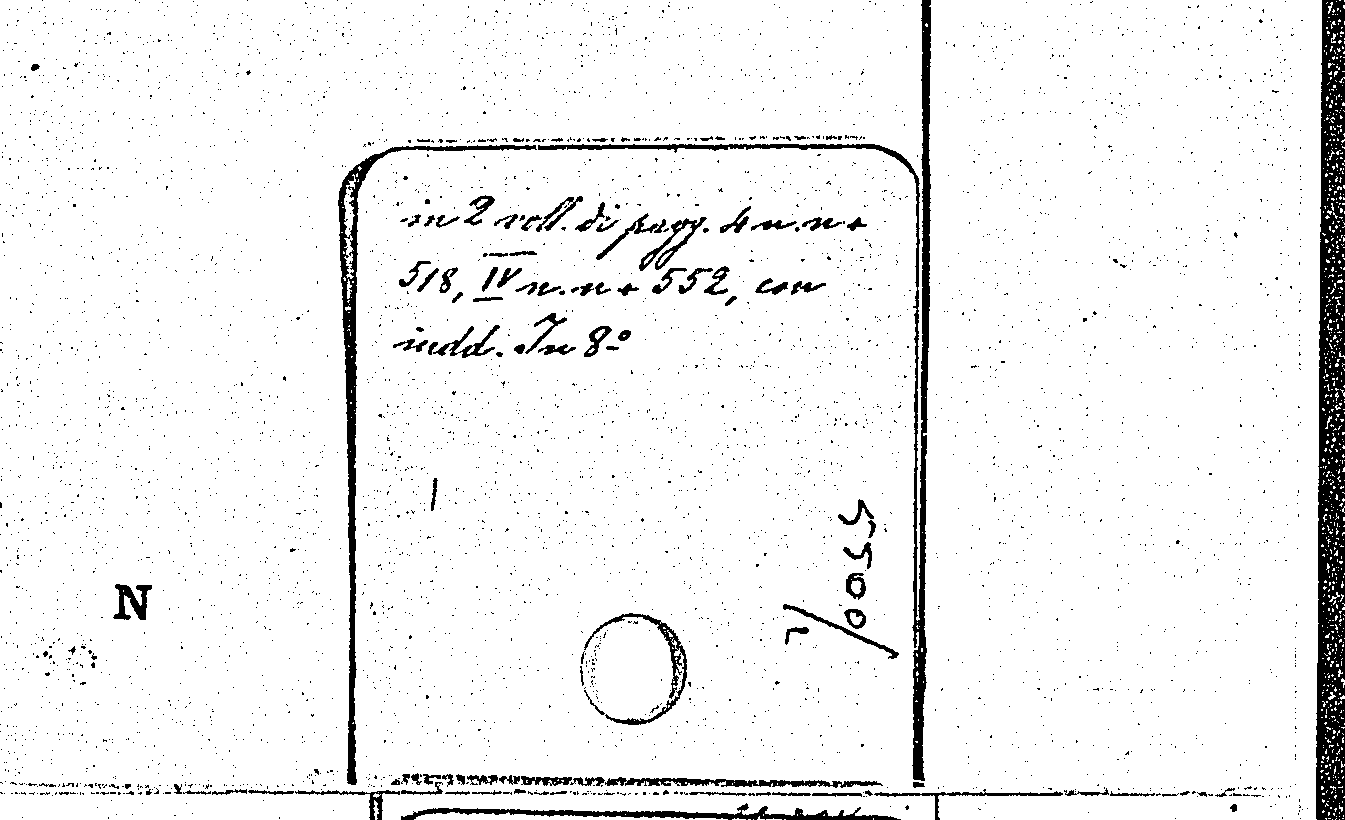 in 2 voll. di pagg. 4 n.n +
518, IV n.n + 552, con
indd. In 8º
N